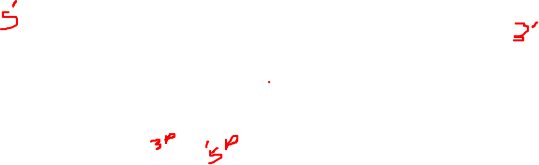 5' 3'
3P '5P